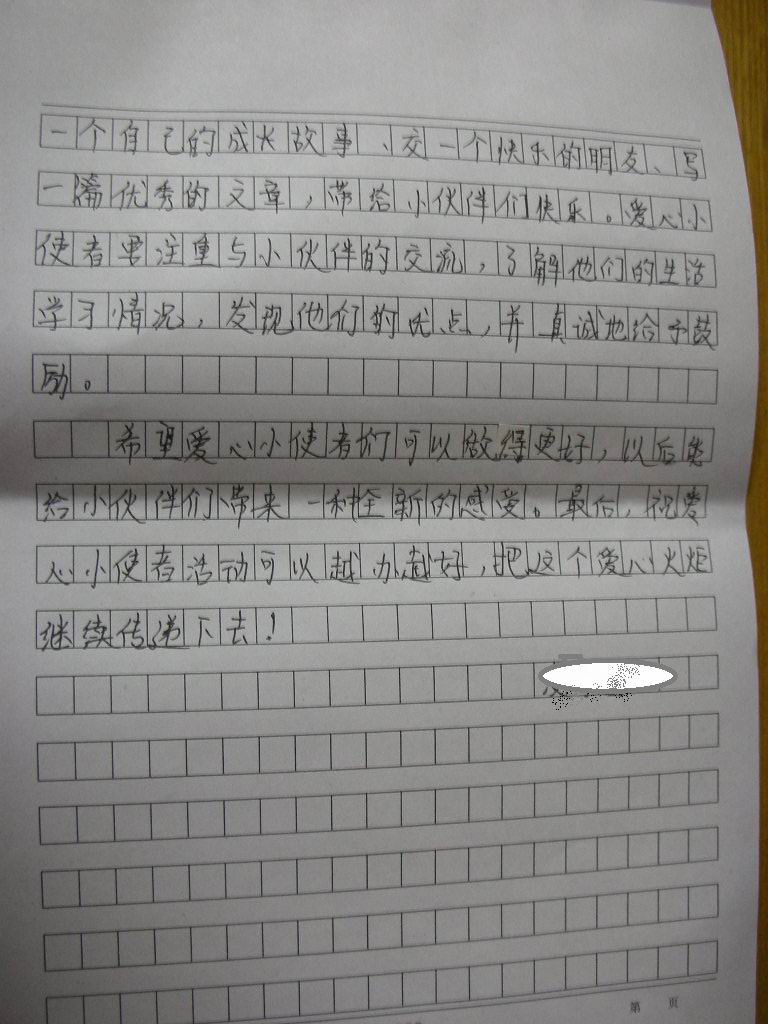 一个自己的成长故事、交一个快乐的朋友、写
一篇优秀的文章，带给小伙伴们快乐。爱心小
使者要注重与小伙伴的交流，了解他们的生活
学习情况，发现他们的优点，并真诚地给予鼓
励。
希望爱心小使者们可以做得更好，以后能
给小伙伴们带来一种全新的感受。最后，祝爱
心小使者活动可以越办越好，把这个爱心火炬
继续传递下去！
第 页